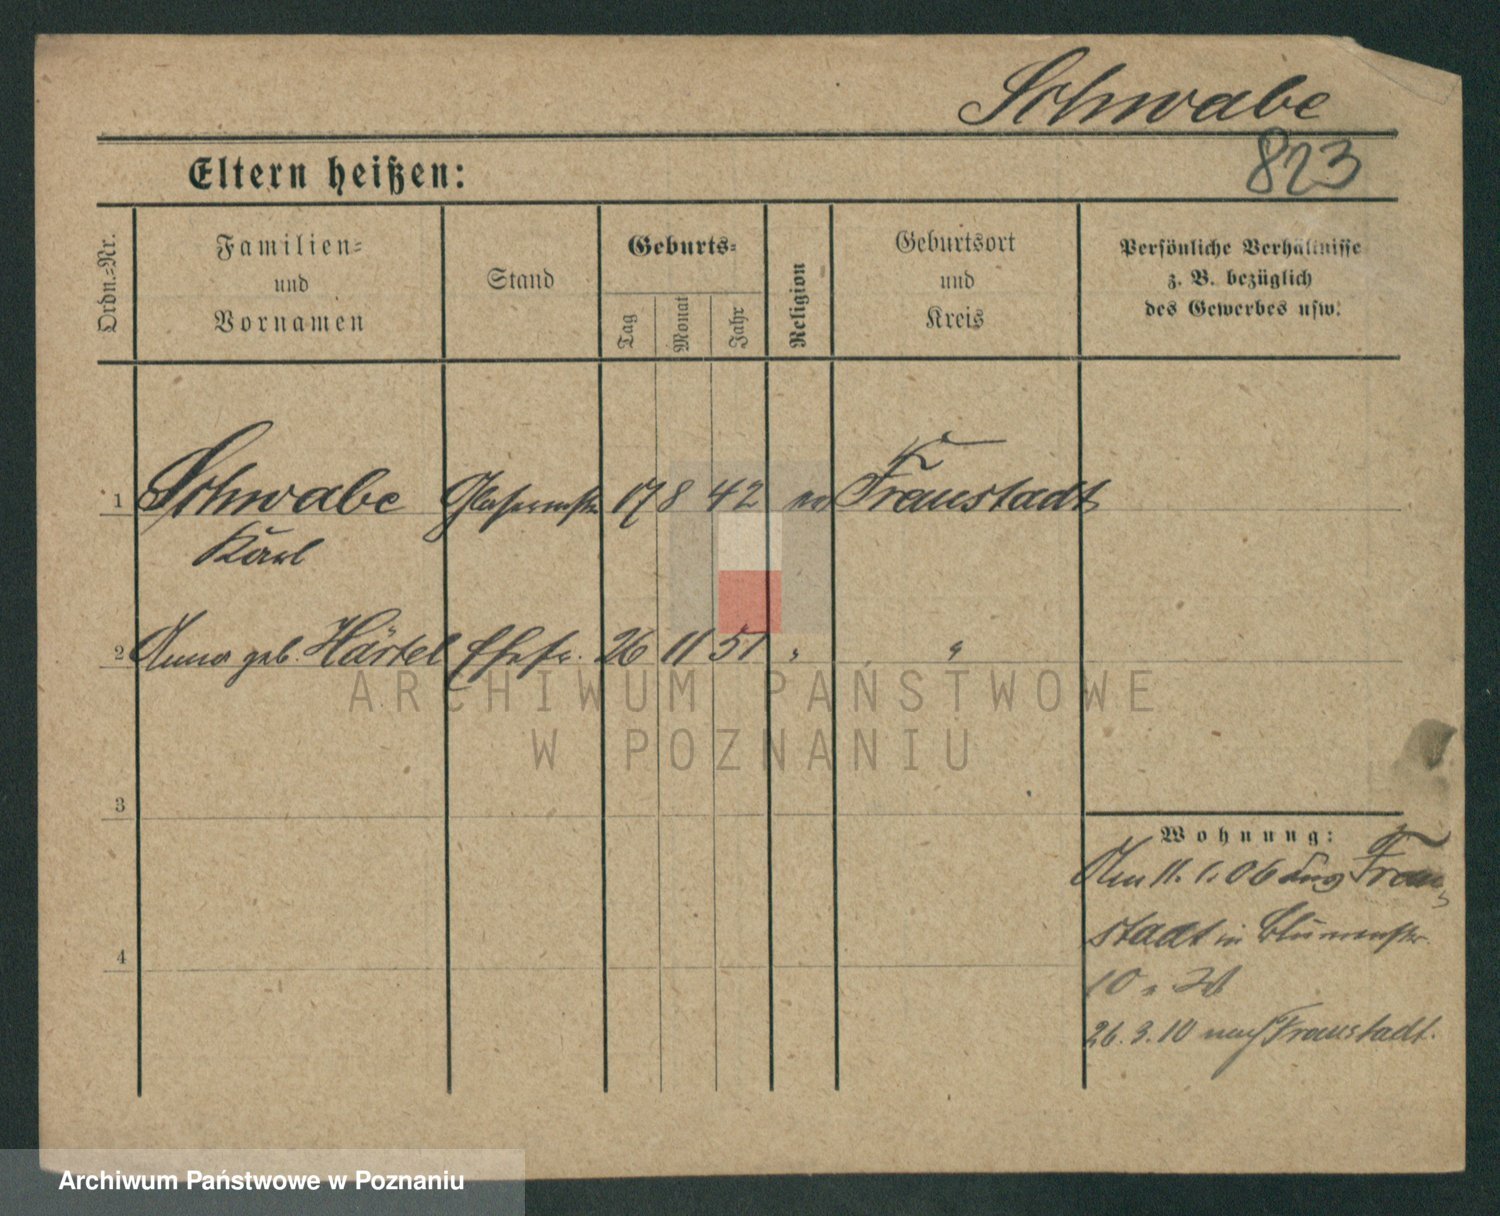 Schwabe
823
Eltern heißen:
Ordn.=Nr.
Familien=
und
Vornamen
Stand
Geburts=
Tag
Monat
Jahr
Religion
Geburtsort
und
Kreis
Persönliche Verhältnisse
z. B. bezüglich
des Gewerbes usw.
1 Schwabe Glasermstr 17 8 42 ev Fraustadt
Karl
2 Anna geb. Härtel Ehefr. 26 11 51 " "
ARCHIWUM PAŃSTWOWE
W POZNANIU
3
Wohnung:
Am 11. 1. 06 aus Frau
stadt in Blumenstr
4
10
26. 3. 10 nach Fraustadt.
Archiwum Państwowe w Poznaniu